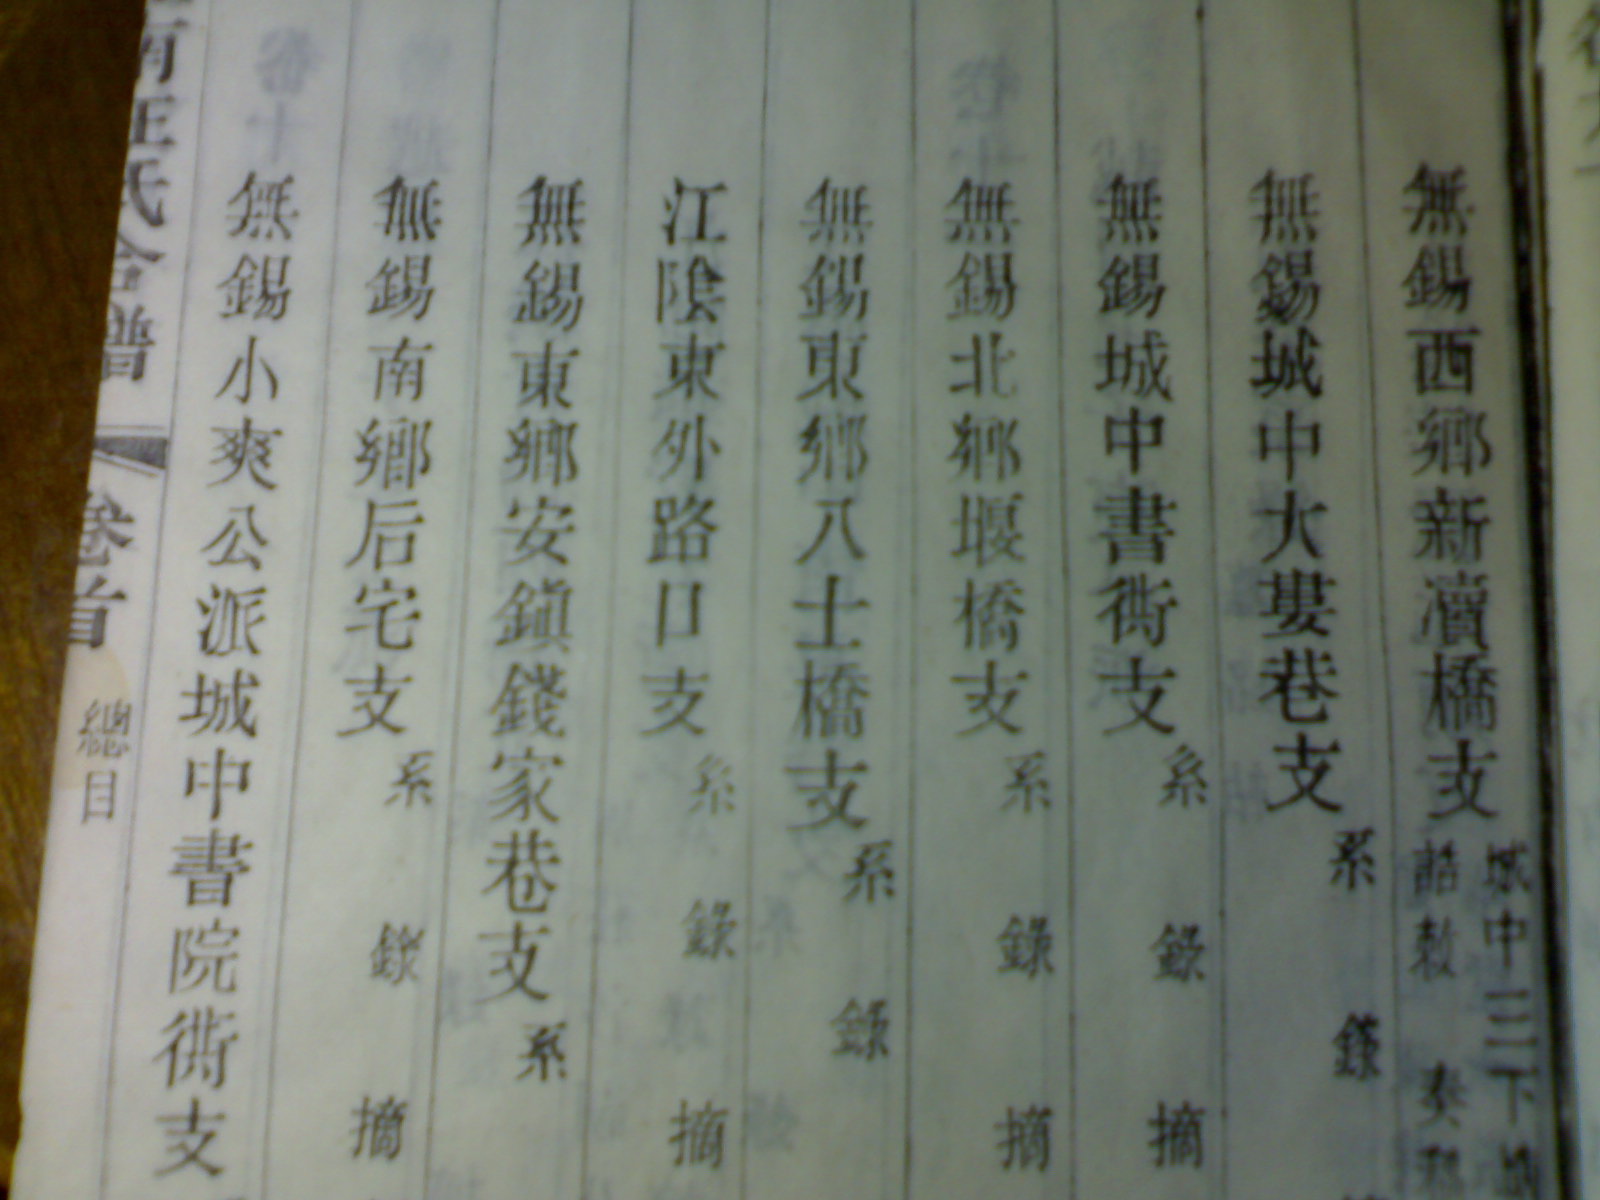 無錫西鄉新瀆橋支
城中三下
誥敕 奏
無錫城中大婁巷支 系 錄
無錫城中書衖支 系 錄 摘
無錫北鄉堰橋支 系 錄 摘
無錫東鄉八士橋支 系 錄
江陰東外路口支 系 錄 摘
無錫東鄉安鎮錢家巷支 系
無錫南鄉后宅支 系 錄 摘
無錫小爽公派城中書院衖支
南王氏合譜 卷首 總目